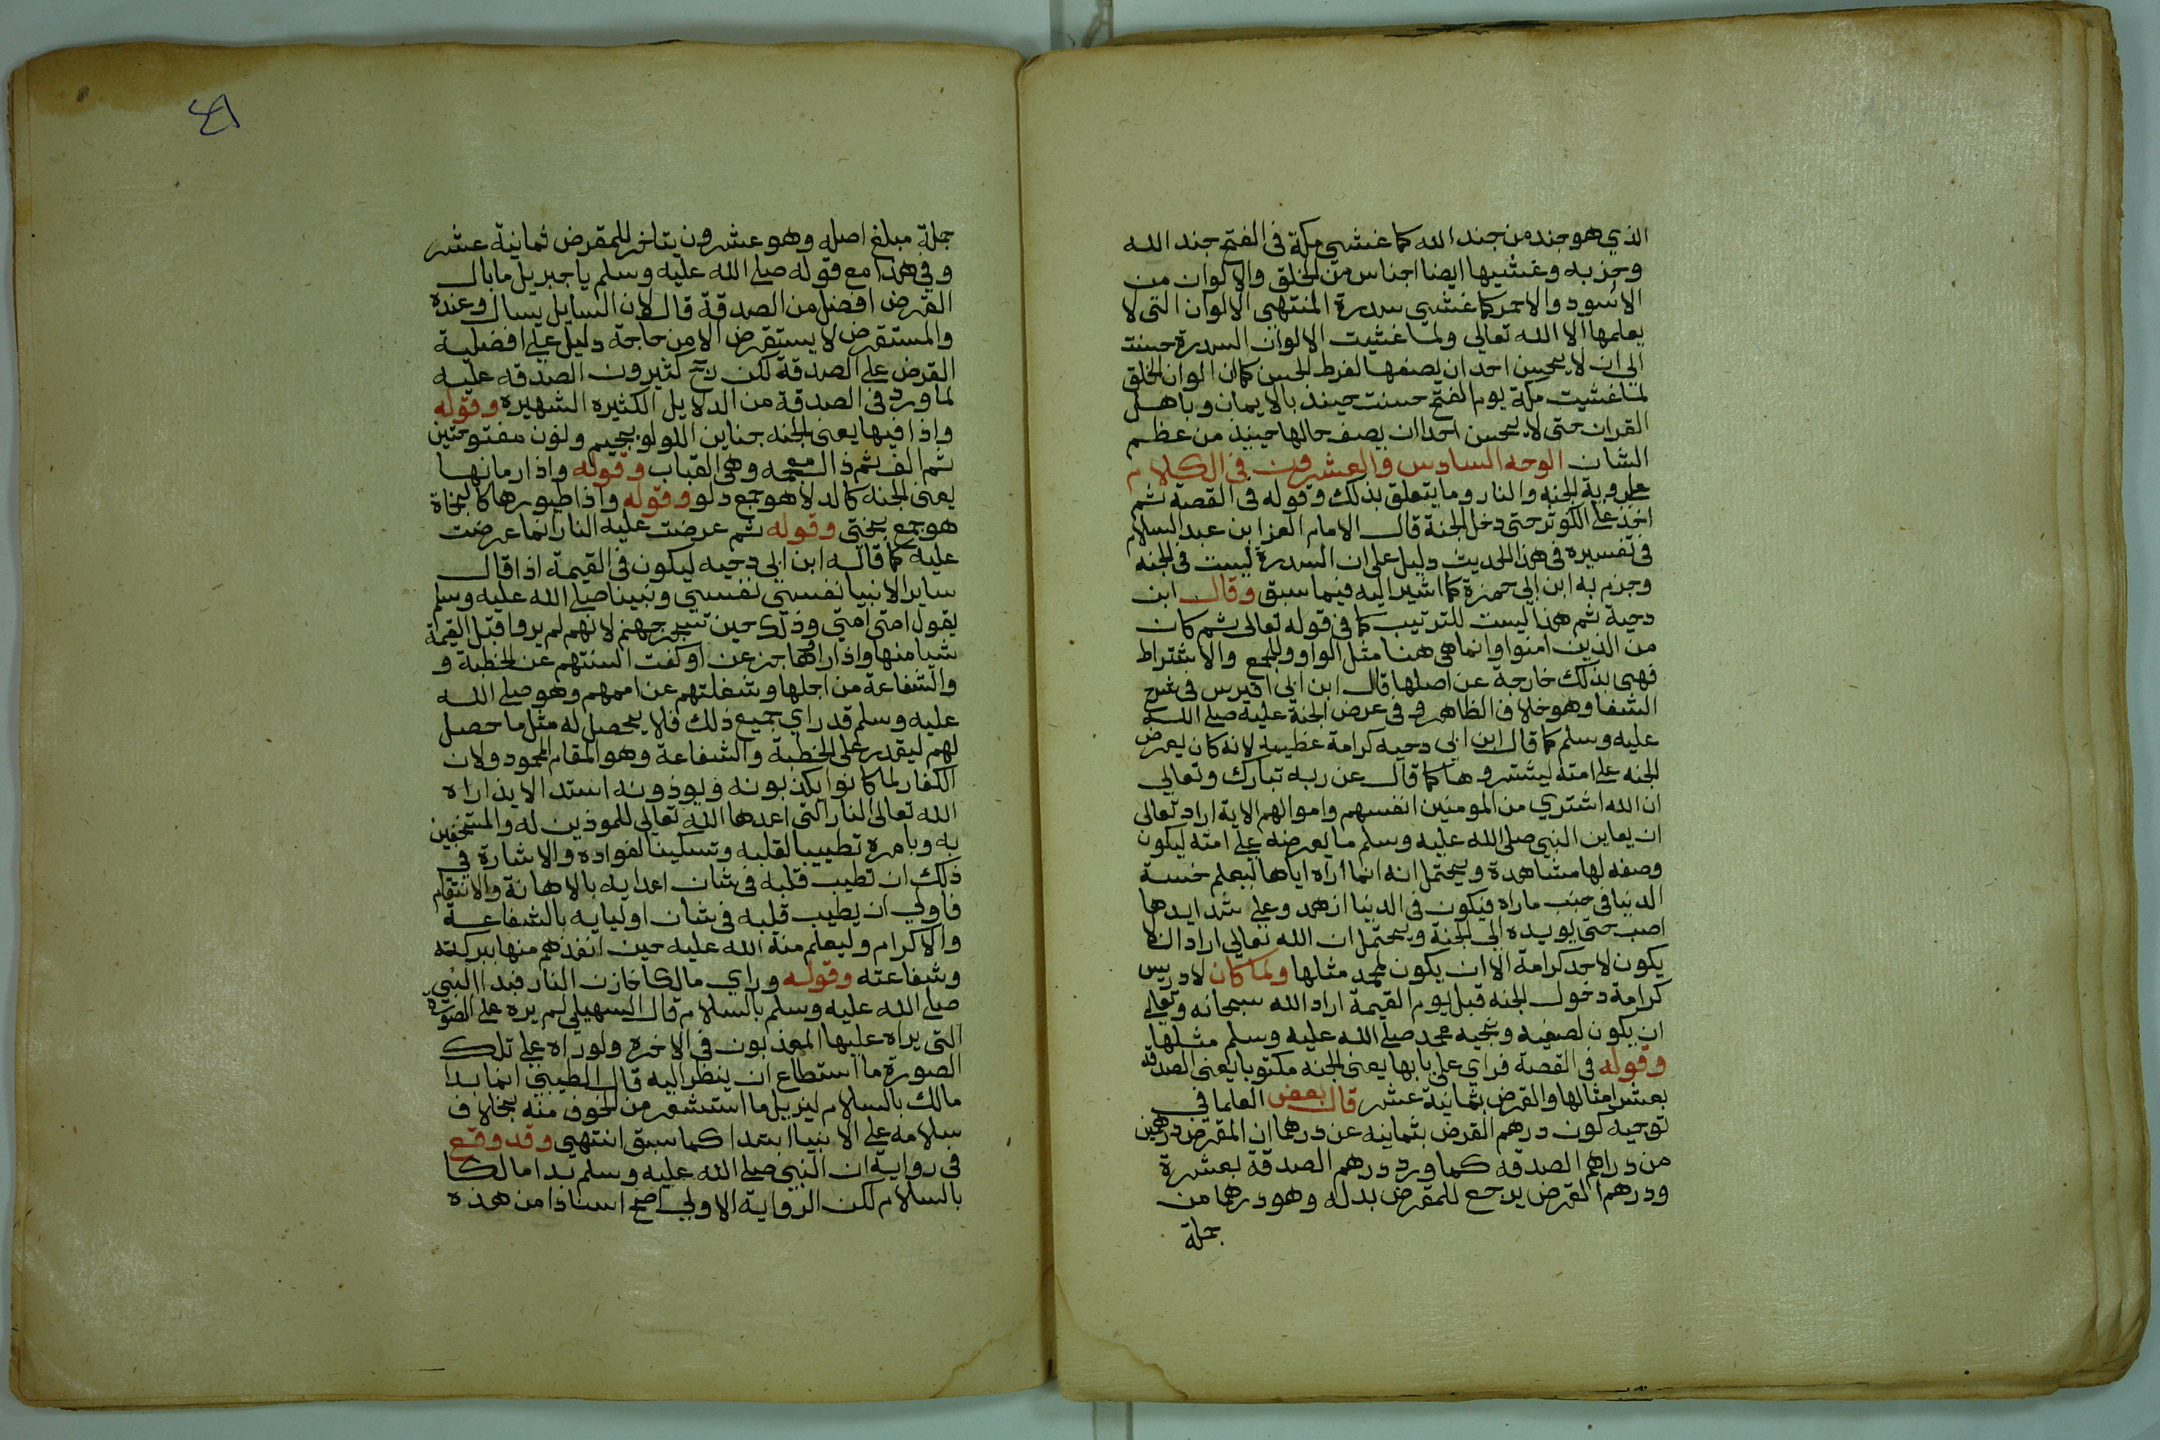 الذي هو جند من جند الله كما غشي مكة في الفتح جند الله
وحزبه وغشيها ايضا اجناس من الخلق والالوان من
الاسود والاحمر كما غشي سدرة المنتهي الالوان التي لا
يعلمها الا الله تعالي ولما غشيت الالوان السدرة حسنت
الي ان لا يحسن احد ان يصفها لفرط الحسن كما ان الوان الخلق
لما غشيت مكة يوم الفتح حسنت حينذ بالايمان وباهل
القران حتي لا يحسن احدا ان يصف حالها حينيذ من عظم
الشان الوجه السادس والعشرون في الكلام
علي روية الجنه والنار وما يتعلق بذلك وقوله في القصة ثم
اخذ علي الكوثر حتي دخل الجنة قال الامام العز ابن عبد السلام
في تفسيره في هذا الحديث دليل علي ان السدرة ليست في الجنه
وجزم به ابن ابي حمزة كما اشير اليه فيما سبق وقال ابن
دحية ثم هذا ليست للترتيب كما في قوله تعالي ثم كان
من الذين امنوا وانما هي هنا مثل الواو وللجمع والاشتراط
فهي بذلك خارجة عن اصلها قال ابن ابي اقبرس في شرح
الشفا وهو خلاف الظاهر و في عرض الجنة عليه صلي الله
عليه وسلم كما قال ابن ابي دحيه كرامة عظيمة لانه كان يعرض
الجنه علي امته ليشتروها كما قال عن ربه تبارك وتعالي
ان الله اشتري من المومنين انفسهم واموالهم الاية اراد تعالي
ان يعاين النبي صلي الله عليه وسلم ما يعرضه علي امته ليكون
وصفه لها مشاهدة ويحتمل انه انما اراه اياها ليعلم خسة
الدنيا في جنب ماراه فيكون في الدنيا ازهد وعلي شدايدها
اصبر حتي يويده الي الجنة ويحتمل ان الله تعالي اراد ان لا
يكون لاحد كرامة الا ان يكون لمحمد مثلها ولما كان لادريس
كرامة دخول الجنه قبل يوم القيمة اراد الله سبحانه وتعالي
ان يكون لصفيه ونجيه محمد صلي الله عليه وسلم مثلها
وقوله في القصة فراي علي بابها يعني الجنه مكتوبا يعني الصدقة
بعشر امثالها والقرض بثمانية عشر قال بعض العلما في
توجيه كون درهم القرض بثمانيه عن درهما ان المقرض درهمين
من دراهم الصدقه كما ورد درهم الصدقة بعشرة
ودرهم القرض يرجع للمقرض بدله وهو درهما من
جملة
جملة مبلغ اصله وهو عشرون يتاخر للمقرض ثمانية عشر
وفي هذا مع قوله صلي الله عليه وسلم يا جبريل ما بال
القرض افضل من الصدقة قال لان السايل يسال وعنده
والمستقرض لا يستقرض الا من حاجة دليل علي افضلية
القرض علي الصدقة لكن رجح كثيرون الصدقه عليه
لما ورد في الصدقة من الدلايل الكثيره الشهيره وقوله
واذا فيها يعني الجنه جنابن اللولو بجيم ونون مفتوحتين
ثم الف ثم ذال معجمه وهي القباب وقوله واذا رمانها
يعني الجنه كالدلاء هو جمع دلو وقوله واذا طيورها كالبخاة
هو جمع بختي وقوله ثم عرضت عليه النار انما عرضت
عليه كما قاله ابن ابي دحيه ليكون في القيمة اذا قال
ساير الانبيا نفسي نفسي ونبينا صلي الله عليه وسلم
يقول امتي امتي وذلك حين تسجر جهنم لانهم لم يروا قبل القيمة
شيا منها واذا راوها جزعن او كفت السنتهم عن الخطبة و
والشفاعة من اجلها وشغلتهم عن اممهم وهو صلي الله
عليه وسلم قد راي جميع ذلك فلا يحصل له مثل ما حصل
لهم ليقدر علي الخطبة والشفاعة وهو المقام المحمود ولان
الكفار لما كانوا يكذبونه ويوذونه اشد الايذ اراه
الله تعالي النار التي اعدها الله تعالي للموذين له والمستخفين
به وبامره تطييبا لقلبه وتسكينا لفواده والاشارة في
ذلك ان تطيب قلبه في شان اعدايه بالاهانة والانتقام
فاولي ان يطيب قلبه في شان اوليايه بالشفاعة
والاكرام وليعلم منة الله عليه حين انقذهم منها ببركته
وشفاعته وقوله وراي مالكا خازن النار فبدا النبي
صلي الله عليه وسلم بالسلام قال السهيلي لم يره علي الصورة
التي يراه عليها المعذبون في الاخره ولو راه علي تلك
الصورة ما استطاع ان ينظر اليه قال الطيبي انما بدا
مالك بالسلام ليزيل ما استشعر من الخوف منه بخلاف
سلامه علي الانبيا ابتدا كما سبق انتهي وقد وقع
في رواية ان النبي صلي الله عليه وسلم بدا مالكا
بالسلام لكن الرواية الاولي اصح اسنادا من هذه